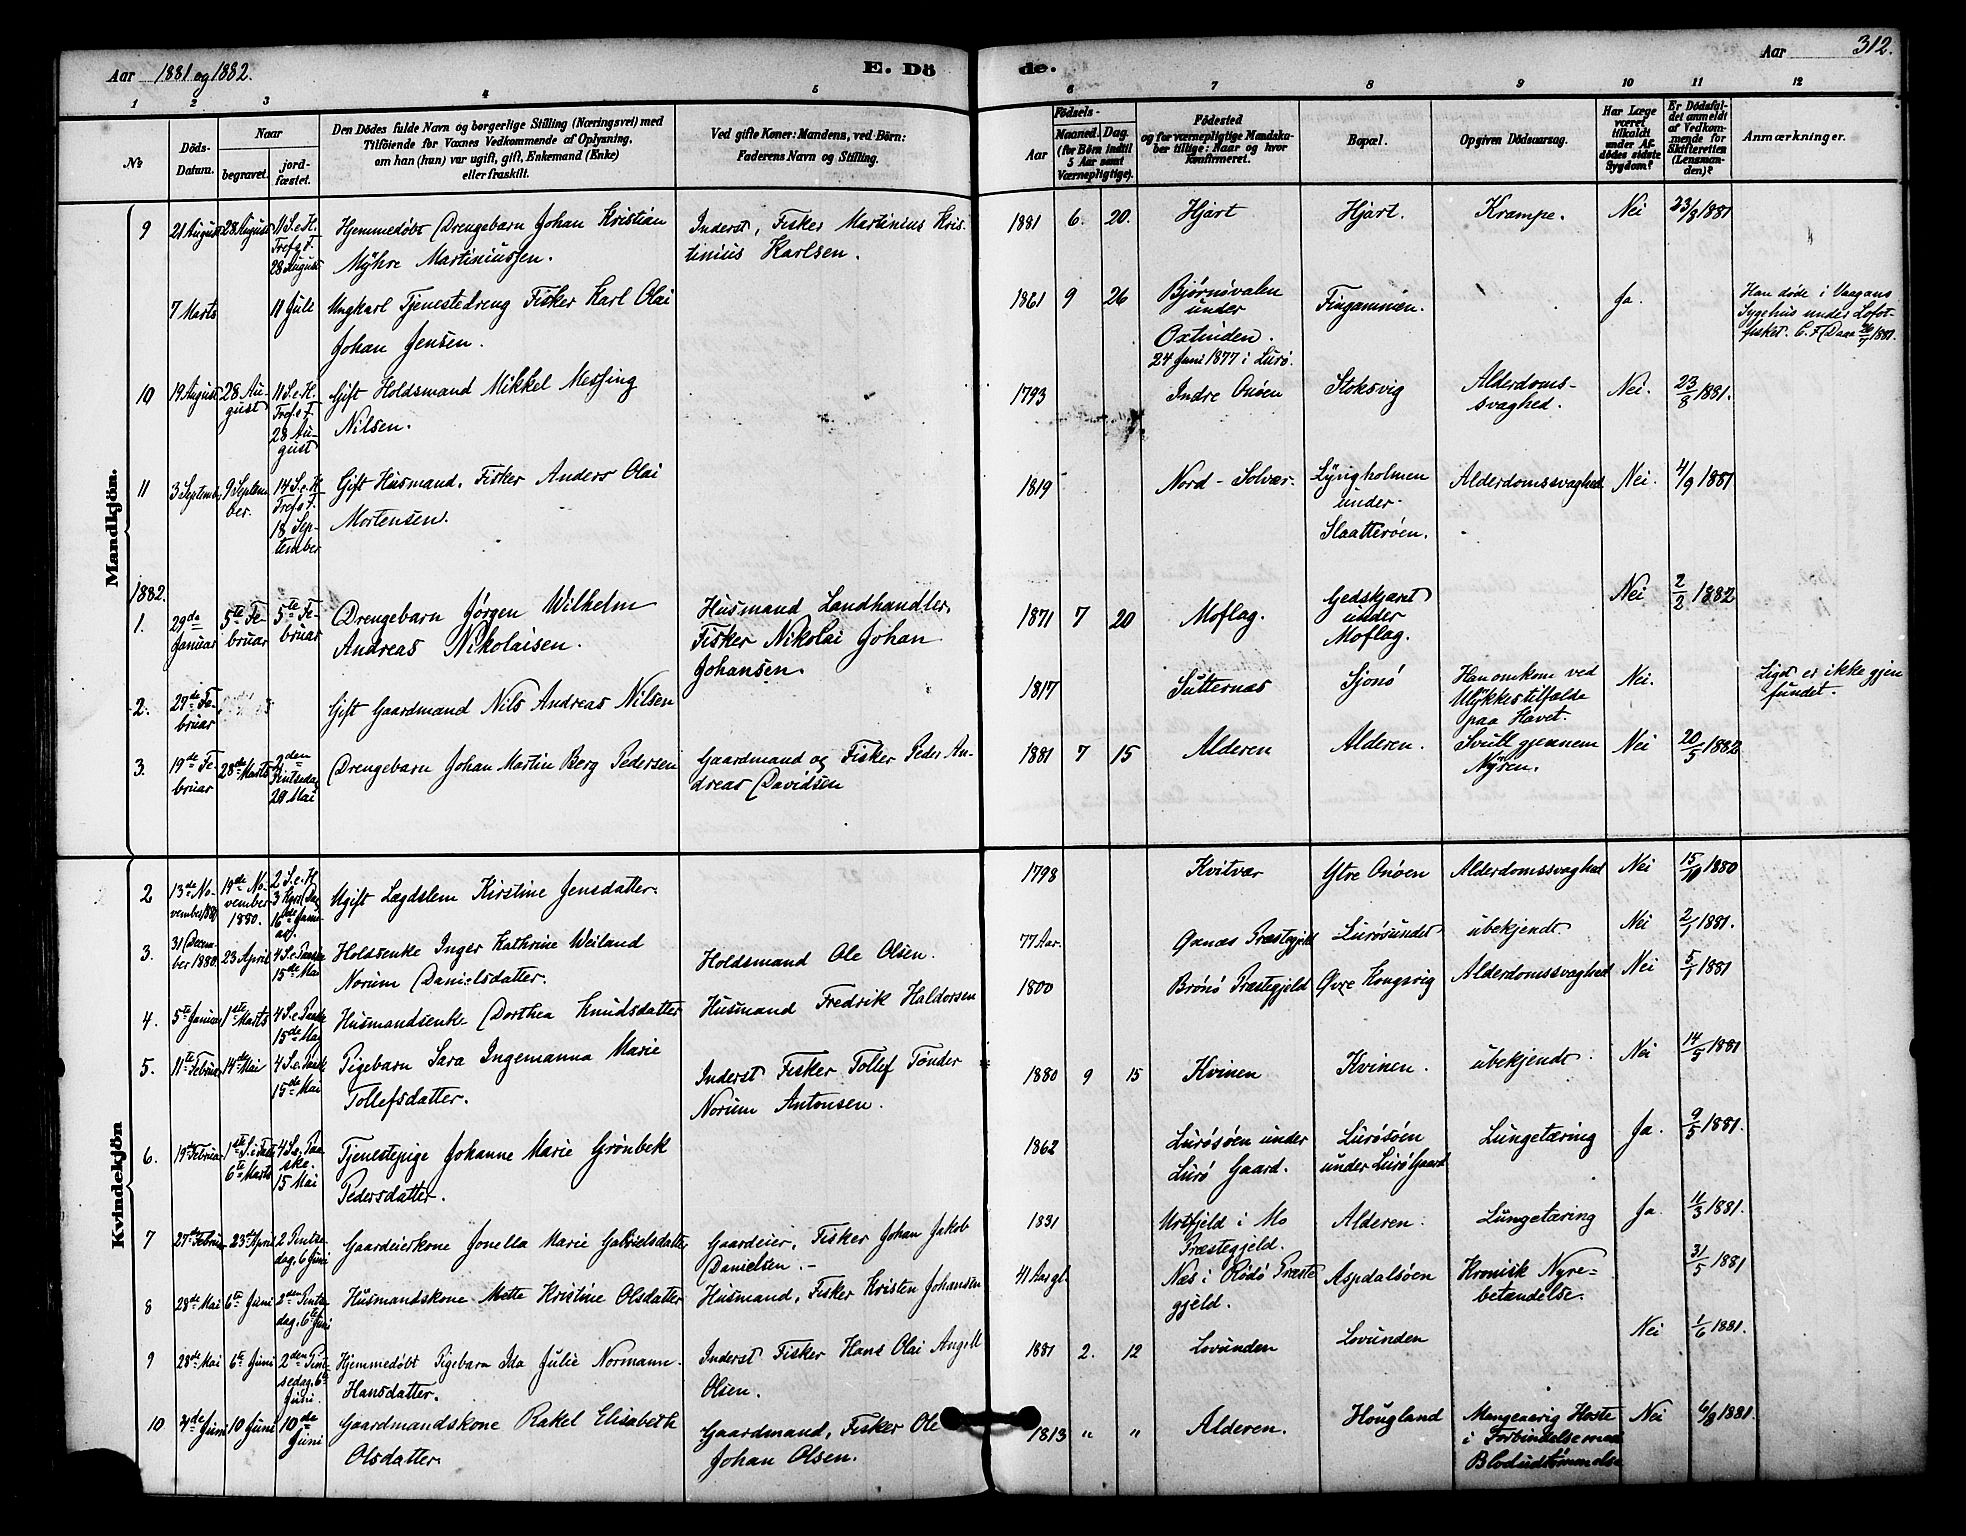 Aar 1881 og 1882.
E. Dö de.
Aar 312.
1 2 3 4 5 6 7 8 9 10 11 12
No
Döds-Datum.
Naar
begravet.
jordfæstet.
Den Dödes fulde Navn og borgerlige Stilling (Næringsvei) med
Tilföiende for Voxnes Vedkommende af Oplysning,
om han (hun) var ugift, gift, Enkemand (Enke)
eller fraskilt.
Ved gifte Koner: Mandens, ved Börn:
Faderens Navn og Stilling.
Födsels-
Aar
Maaned. Dag.
(for Börn indtil
5 Aar samt
Værnepligtige).
Födested
og for værnepligtige Mandskaber
tillige: Naar og hvor
konfirmeret.
Bopæl.
Opgiven Dödsaarsag.
Har Læge
været
tilkaldt
under Afdödes
sidste
Sygdom?
Er Dödsfaldet
anmeldt
af Vedkommende
for
Skifteretten
(Lensmanden)?
Anmærkninger.
Mandkjön.
9 21 August 28 August 11 S. e. H. Tref. S. 28 August
Hjemmedöbt Drengebarn Johan Kristian
Myhre Martiniussen.
Inderst, Fisker Martinius Kristinius
Karlsen.
1881 6. 20. Hjart Hjart. Krampe. Nei 23/8 1881
7 Marts 11 Juli
Ungkarl Tjenestedreng Fisker Karl Olai
Johan Jensen.
1861 9 26
Björnövalen
under
Oxtinden.
24 Juni 1877 i Lurö.
Ja.
Han döde i Vaagans
Sygehus under Lofotfisket.
10 19 August 28 August 11 S. e. H. Tref. S. 28 August
Gift Holdsmand Mikkel Messing
Nilsen.
1793 Indre Onöen Stoksvig
Alderdomssvaghed.
Nei. 23/8 1881.
11 3 September 9 September 14 S. e. H Tref. S. 18 September
Gift Husmand, Fisker Anders Olai
Mortensen.
1819 Nord-Solvær.
Lyngholmen
under
Slaatteröen.
Alderdomssvaghed Nei. 4/9 1881
1882.
1. 29de Januar 5te Februar 5te Februar
Drengebarn Jörgen Wilhelm
Andreas Nikolaisen.
Husmand Landhandler,
Fisker Nikolai Johan
Johansen.
1871 7 20 Moflag.
Gedskjæret
under
Moflag.
Nei 2/2 1882
2. 27de Februar
Gift Gaardmand Nils Andreas Nilsen
1817 Sutternæs Sjonö
Han omkom ved
Ulykkestilfælde
paa Havet.
Nei.
Liget er ikke gjenfundet.
3. 19de Februar 28de Marts 2den Pintsedag 29 Mai
Drengebarn Johan Martin Berg Pedersen
Gaardmand og Fisker Peder Andreas
Davidsen
1881 7 15 Alderen Alderen.
Svull gjennem
Nyren.
Nei 20/5 1882
Kvindekjön
2 13de November 1880 19de November 1880.
Ugift Lægdslem Kirstine Jensdatter.
1798 Kvitvær Ytre Onöen Alderdomssvaghed Nei 15/11 1880
3. 31 December 1880. 23 April 4 S. e. Paaske 15de Mai
Holdsenke Inger Kathrine Weiland
Norum Danielsdatter.
Holdsmand Ole Olsen.
77 Aar. Præstegjeld Lurösundet ubekjendt Nei 2/1 1881.
4. 5te Januar 1ste Marts 4 S. e. Paaske 15de Mai
Husmandsenke Dorthea Knudsdatter
Husmand Fredrik Haldorsen
1800 Brönö Præstegjeld Övre Kongsvig Alderdomssvaghed Nei 5/1 1881
5. 11te Februar 14de Mai 4 S. e. Paaske 15de Mai
Pigebarn Sara Ingemanna Marie
Tollefsdatter.
Inderst Fisker Tollef Tönder
Norum Antonsen.
1880 9 15 Kvinen Kvinen. ubekjendt. Nei 14/5 1881
6. 19de Februar 1ste S. i Faste 6te Marts 4 S. e. Paaske. 15 Mai
Tjenestepige Johanne Marie Grönbek
Pedersdatter.
1862
Lurösöen under
Lurö Gaard.
Lurösöen
under Lurö Gaard
Lungetæring Ja. 9/5 1881.
7 27de Februar 23de April 2 Pintsedag, 6 Juni
Gaardeierkone Jonella Marie Gabrielsdatter
Gaardeier, Fisker Johan Jakob
Danielsen.
1831
Urtfjeld i Mo
Præstegjeld.
Alderen. Lungetæring Ja. 11/3 1881.
8 28de Mai 6te Juni 2den Pintsedag, 6te Juni
Husmandskone Mette Kristine Olsdatter
Husmand, Fisker Kristen Johansen
41 Aar gl.
Næs i Rödö Præstegjeld.
Aspdalsöen
Kronisk Nyrebetændelse.
31/5 1881
9 28de Mai 6te Juni 2den Pintsedag, 6te Juni.
Hjemmedöbt Pigebarn Ida Julie Normann
Hansdatter.
Inderst Fisker Hans Olai Angell
Olsen.
1881 2. 12 Lovunden Lovunden Nei 1/6 1881.
10 4de Juni 10 Juni 10de Juni
Gaardmandskone Rakel Elisabeth
Olsdatter.
Gaardmand, Fisker Ole
Johan Olsen.
1813 " " Alderen. Hougland
Mangeaarig Hoste
i Forbindelse med
Blodudtömmelse
Nei 6/8 1881.